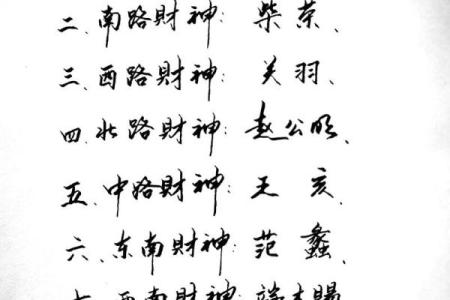 二、南路財神：柴荣、
三、西路財神：关羽、
四、北路財神：赵公明、
五、中路財神：王亥、
六、东南財神：范蠡、
七、西南財神：端木賜